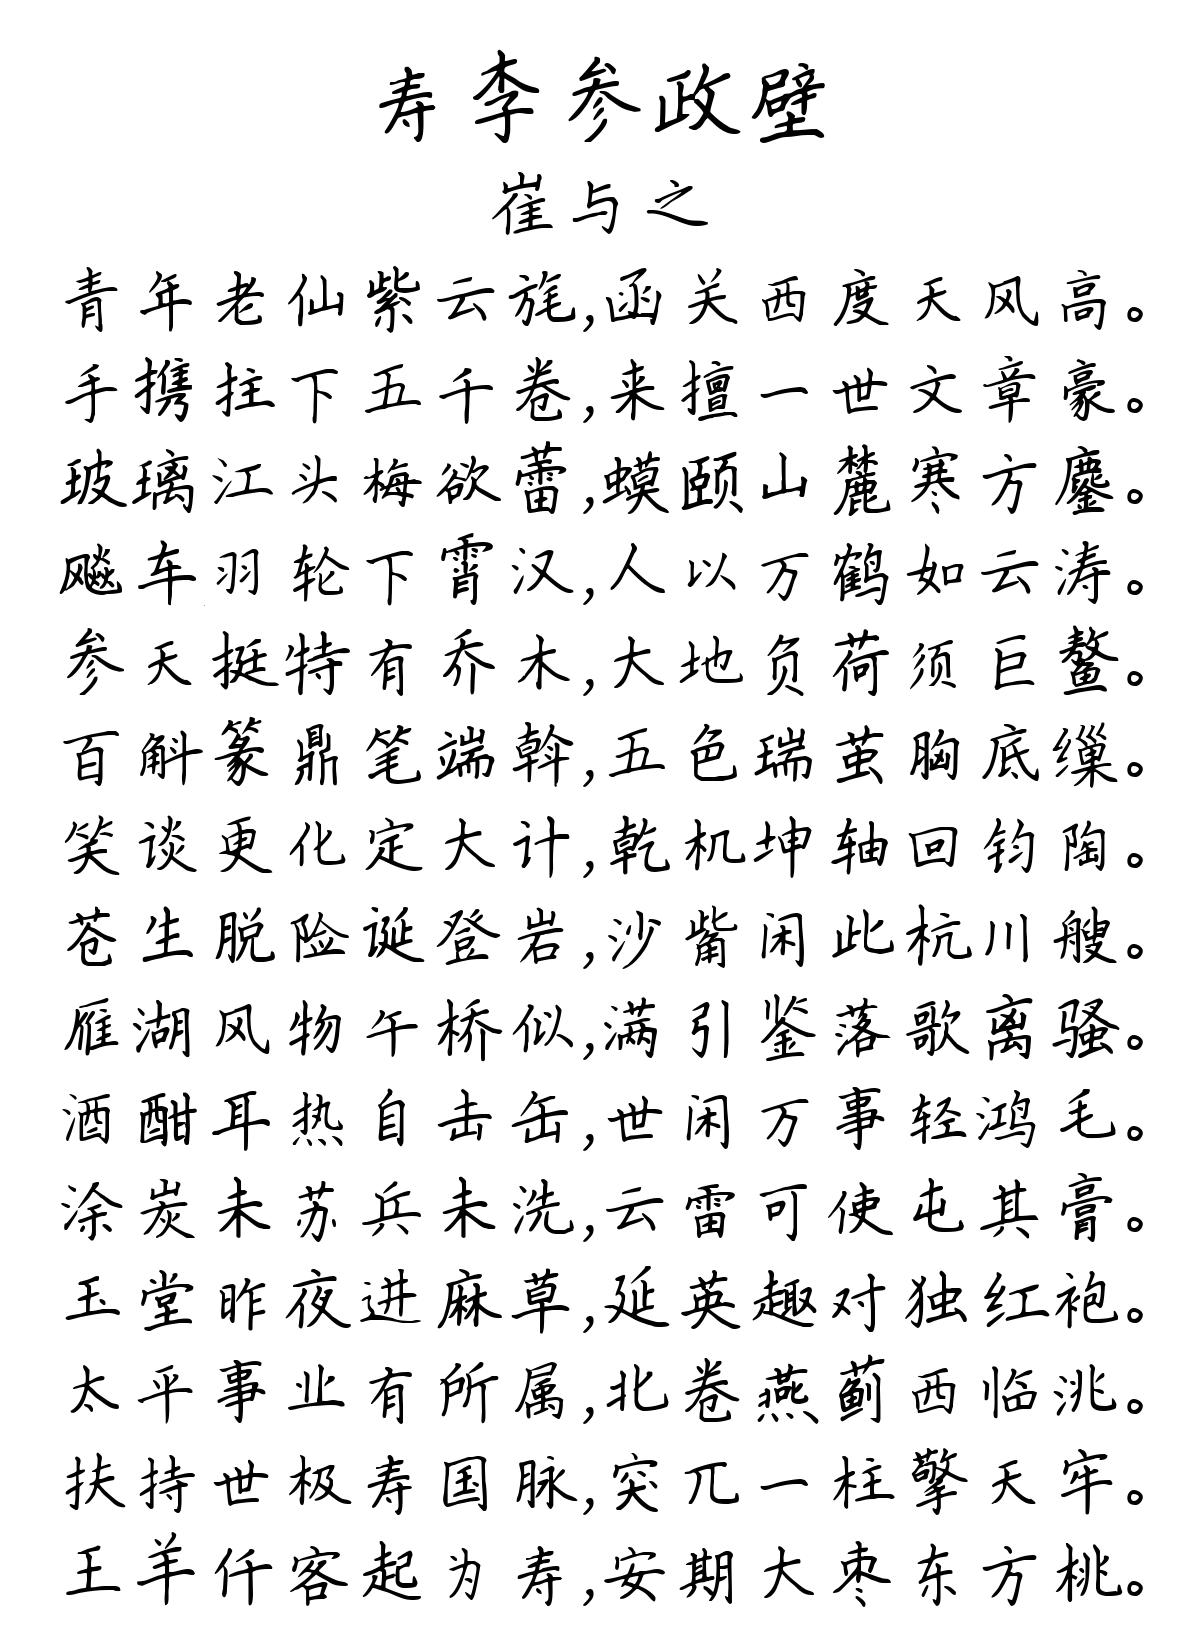 寿李参政壁
崔与之
青年老仙紫云旄,函关西度天风高。
手携拄下五千卷,来擅一世文章豪。
玻璃江头梅欲蕾,蟆颐山麓寒方鏖。
飚车羽轮下霄汉,人以万鹤如云涛。
参天挺特有乔木,大地负荷须巨鳌。
百斛篆鼎笔端斡,五色瑞茧胸底缫。
笑谈更化定大计,乾机坤轴回钧陶。
苍生脱险诞登岩,沙觜闲此杭川艘。
雁湖风物午桥似,满引鉴落歌离骚。
酒酣耳热自击缶,世闲万事轻鸿毛。
涂炭未苏兵未洗,云雷可使屯其膏。
玉堂昨夜进麻草,延英趣对独红袍。
太平事业有所属,北卷燕蓟西临洮。
扶持世极寿国脉,突兀一柱擎天牢。
王羊仟客起为寿,安期大枣东方桃。